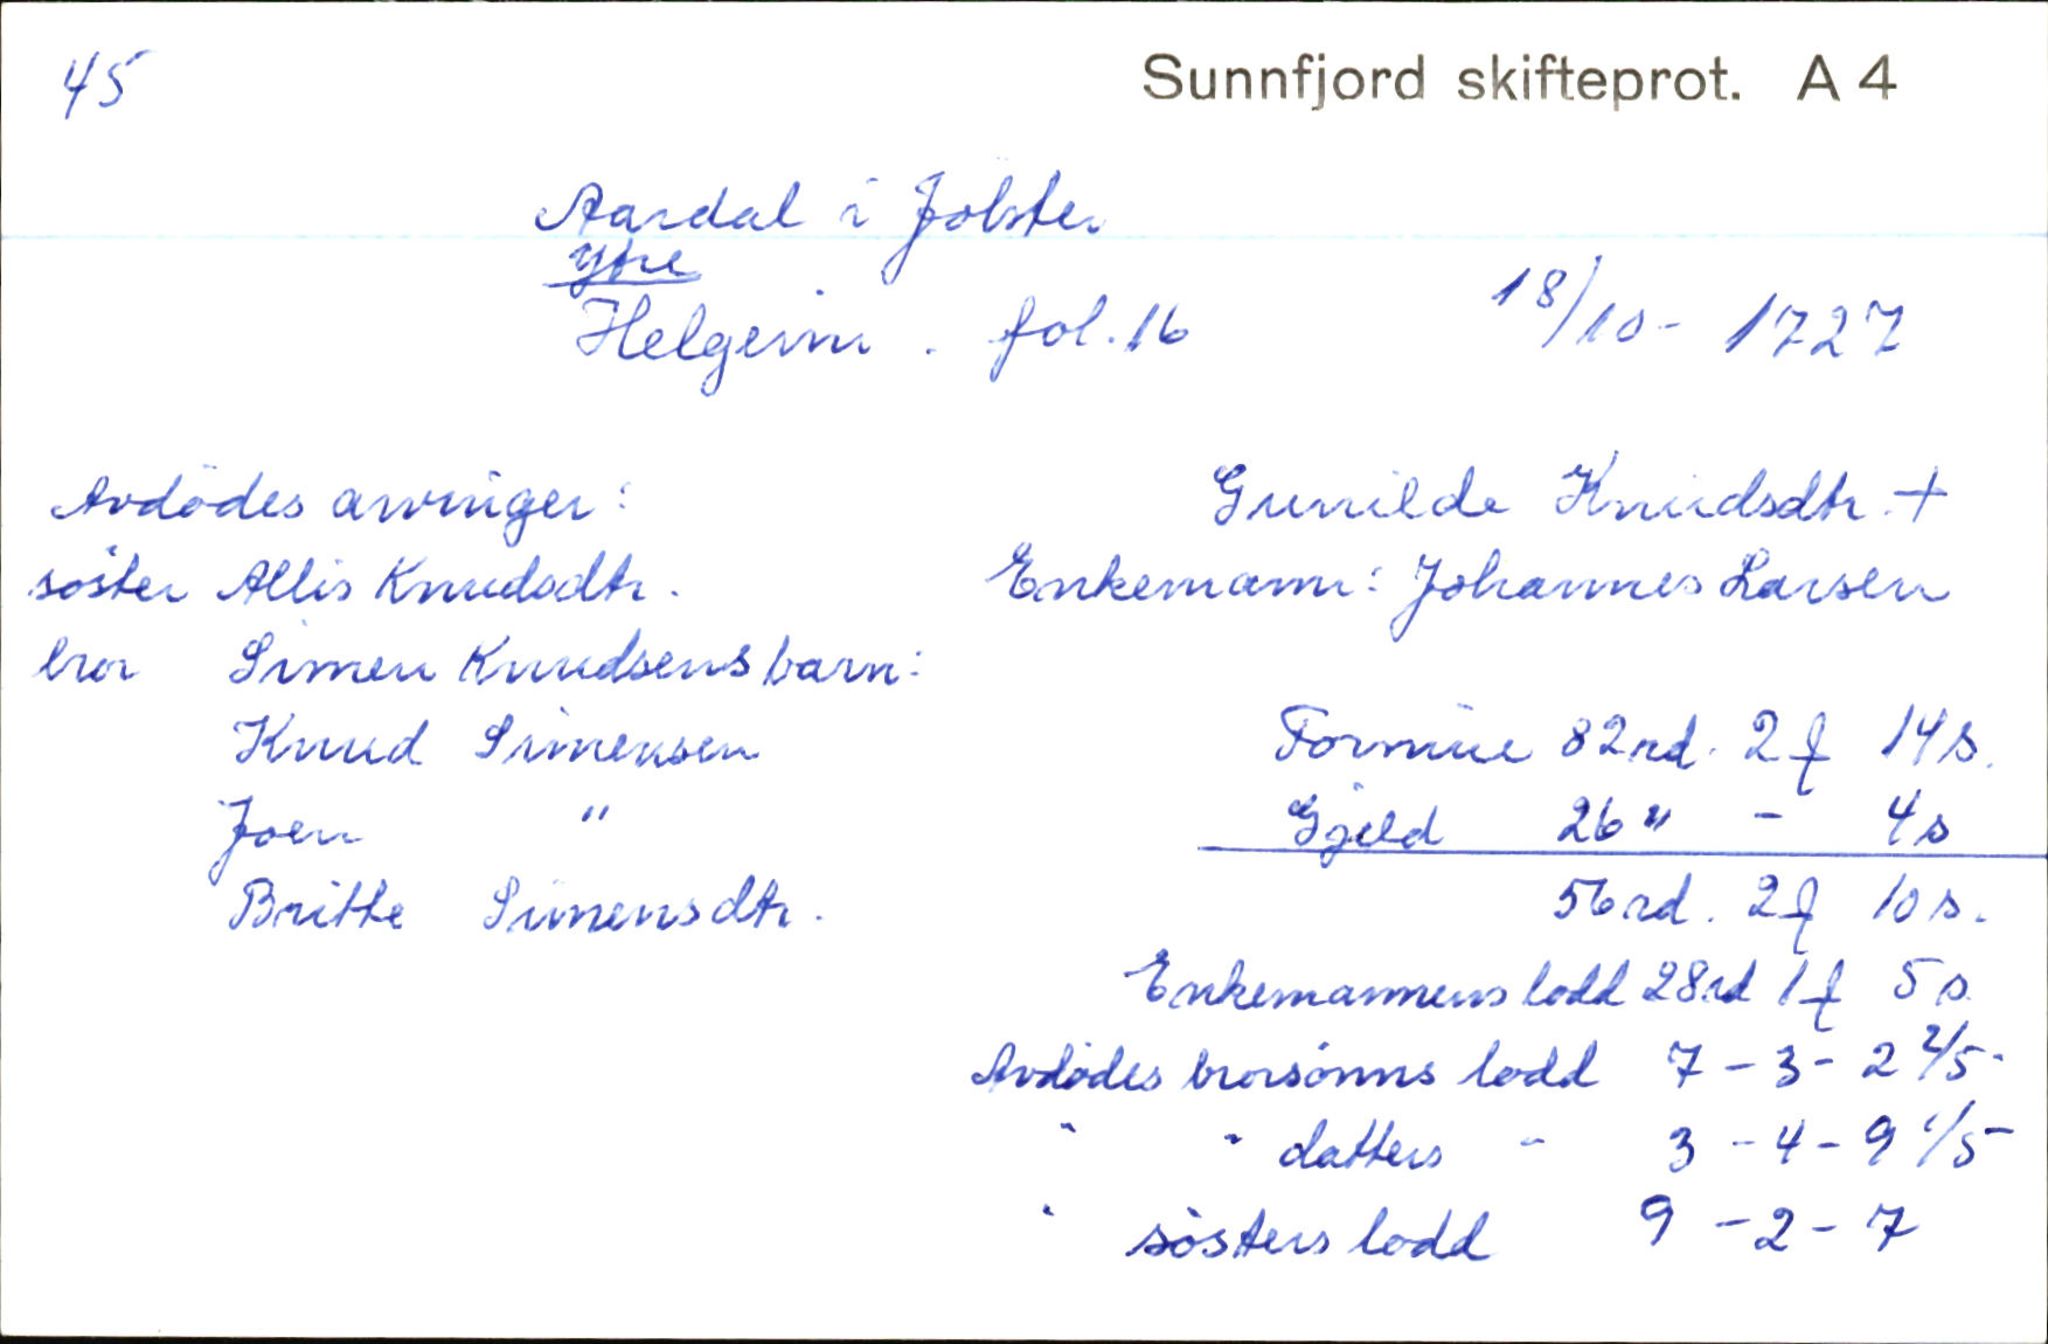 45
Sunnfjord skifteprot. A 4
Aardal i Jölster
Ytre
Helgeim . fol. 16
18/10- 1727
Avdödes arvinger:
söster Allis Knudsdtr.
bror Simen Knudsens barn:
Knud Simensen
Joen "
Britte Simensdtr.
Gunilde Knudsdtr. +
Enkemann: Johannes Larsen
Formue 82 rd. 2 f 14 s.
Gjeld 26 " - 4 s
56 rd. 2 f 10 s.
Enkemannens lodd 28 rd 1 f 5 s
Avdödes brorsönns lodd 7 - 3 - 2 2/5 -
" " datters " 3 - 4 - 9 1/5 -
" södsters lodd 9 - 2 - 7